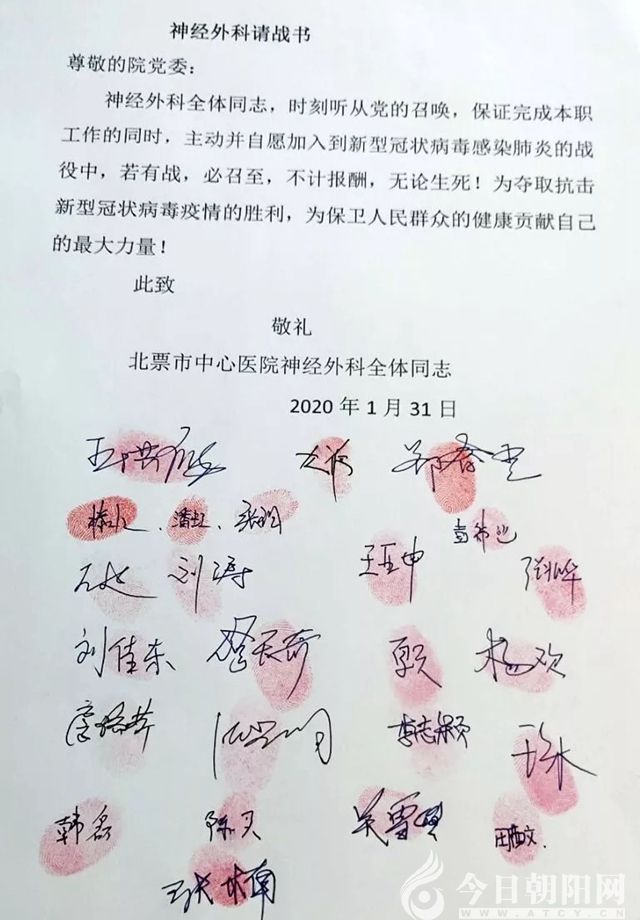 神经外科请战书
尊敬的院党委：
神经外科全体同志，时刻听从党的召唤，保证完成本职
工作的同时，主动并自愿加入到新型冠状病毒感染肺炎的战
役中，若有战，必召至，不计报酬，无论生死！为夺取抗击
新型冠状病毒疫情的胜利，为保卫人民群众的健康贡献自己
的最大力量！
此致
敬礼
北票市中心医院神经外科全体同志
2020 年 1 月 31 日
刘涛 王亚中 张晔
刘佳东 杨欢
李志颖
韩磊 陈天 吴雪
今日朝阳网
WWW.ATCY.CN